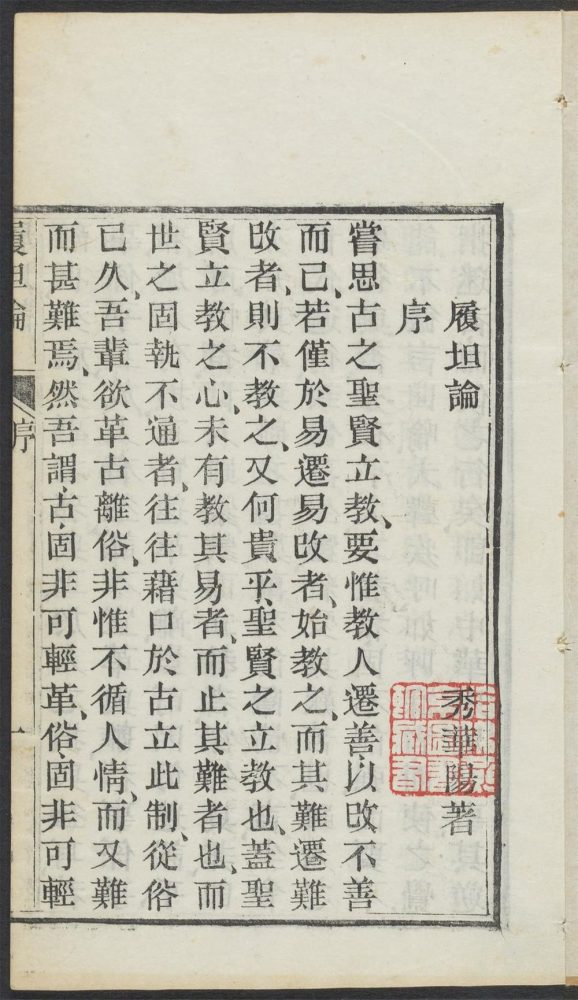 履坦論　秀華陽著
序
嘗思古之聖賢立教、要惟教人遷善以改不善
而已、若僅於易遷易改者、始教之、而其難遷難
改者、則不教之、又何貴乎、聖賢之立教也、蓋聖
賢立教之心、未有教其易者、而止其難者也、而
世之固執不通者、往往藉口於古立此制、從俗
已久、吾輩欲革古離俗、非惟不循人情、而又難
而甚難焉、然吾謂、古固非可輕革、俗固非可輕
履坦論　序　一